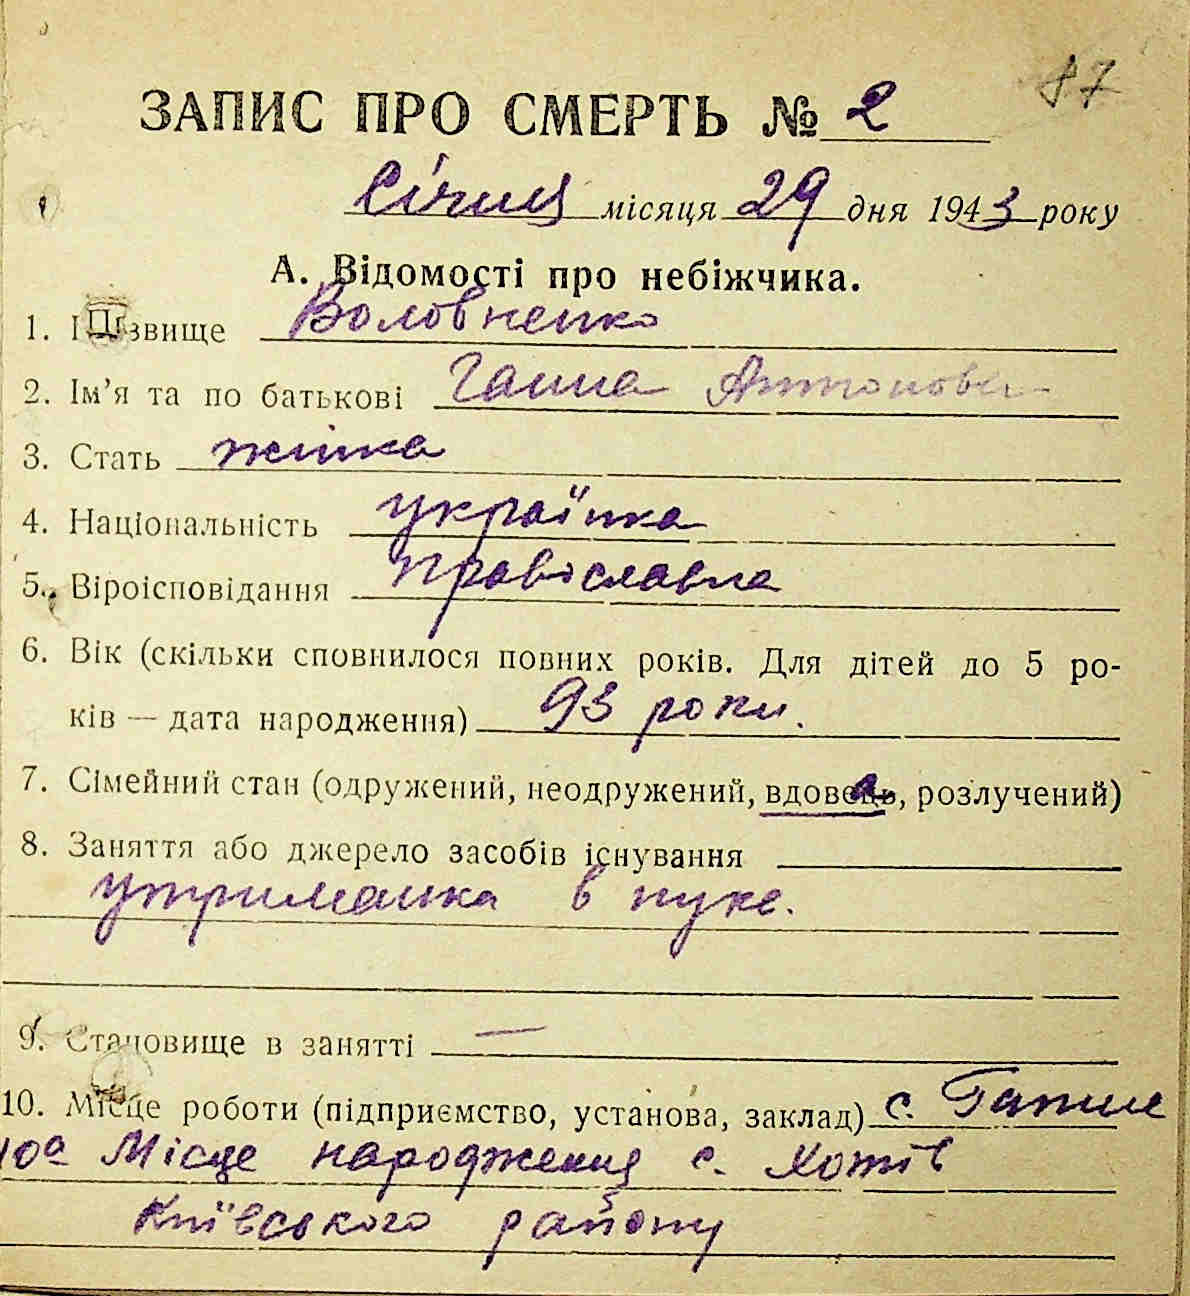 87
ЗАПИС ПРО СМЕРТЬ № 2
Січня місяця 29 дня 1943 року
А. Відомості про небіжчика.
1. Прізвище Воловненко
2. Ім'я та по батькові Ганна Антоновна
3. Стать жінка
4. Національність українка
5. Віроісповідання православна
6. Вік (скільки сповнилося повних років. Для дітей до 5 ро-
ків — дата народження) 93 роки.
7. Сімейний стан (одружений, неодружений, вдова, розлучений)
8. Заняття або джерело засобів існування
утриманка в
9. Становище в занятті —
10. Місце роботи (підприємство, установа, заклад) с. Гатне
10а Місце народження с. Хотів
Київського району